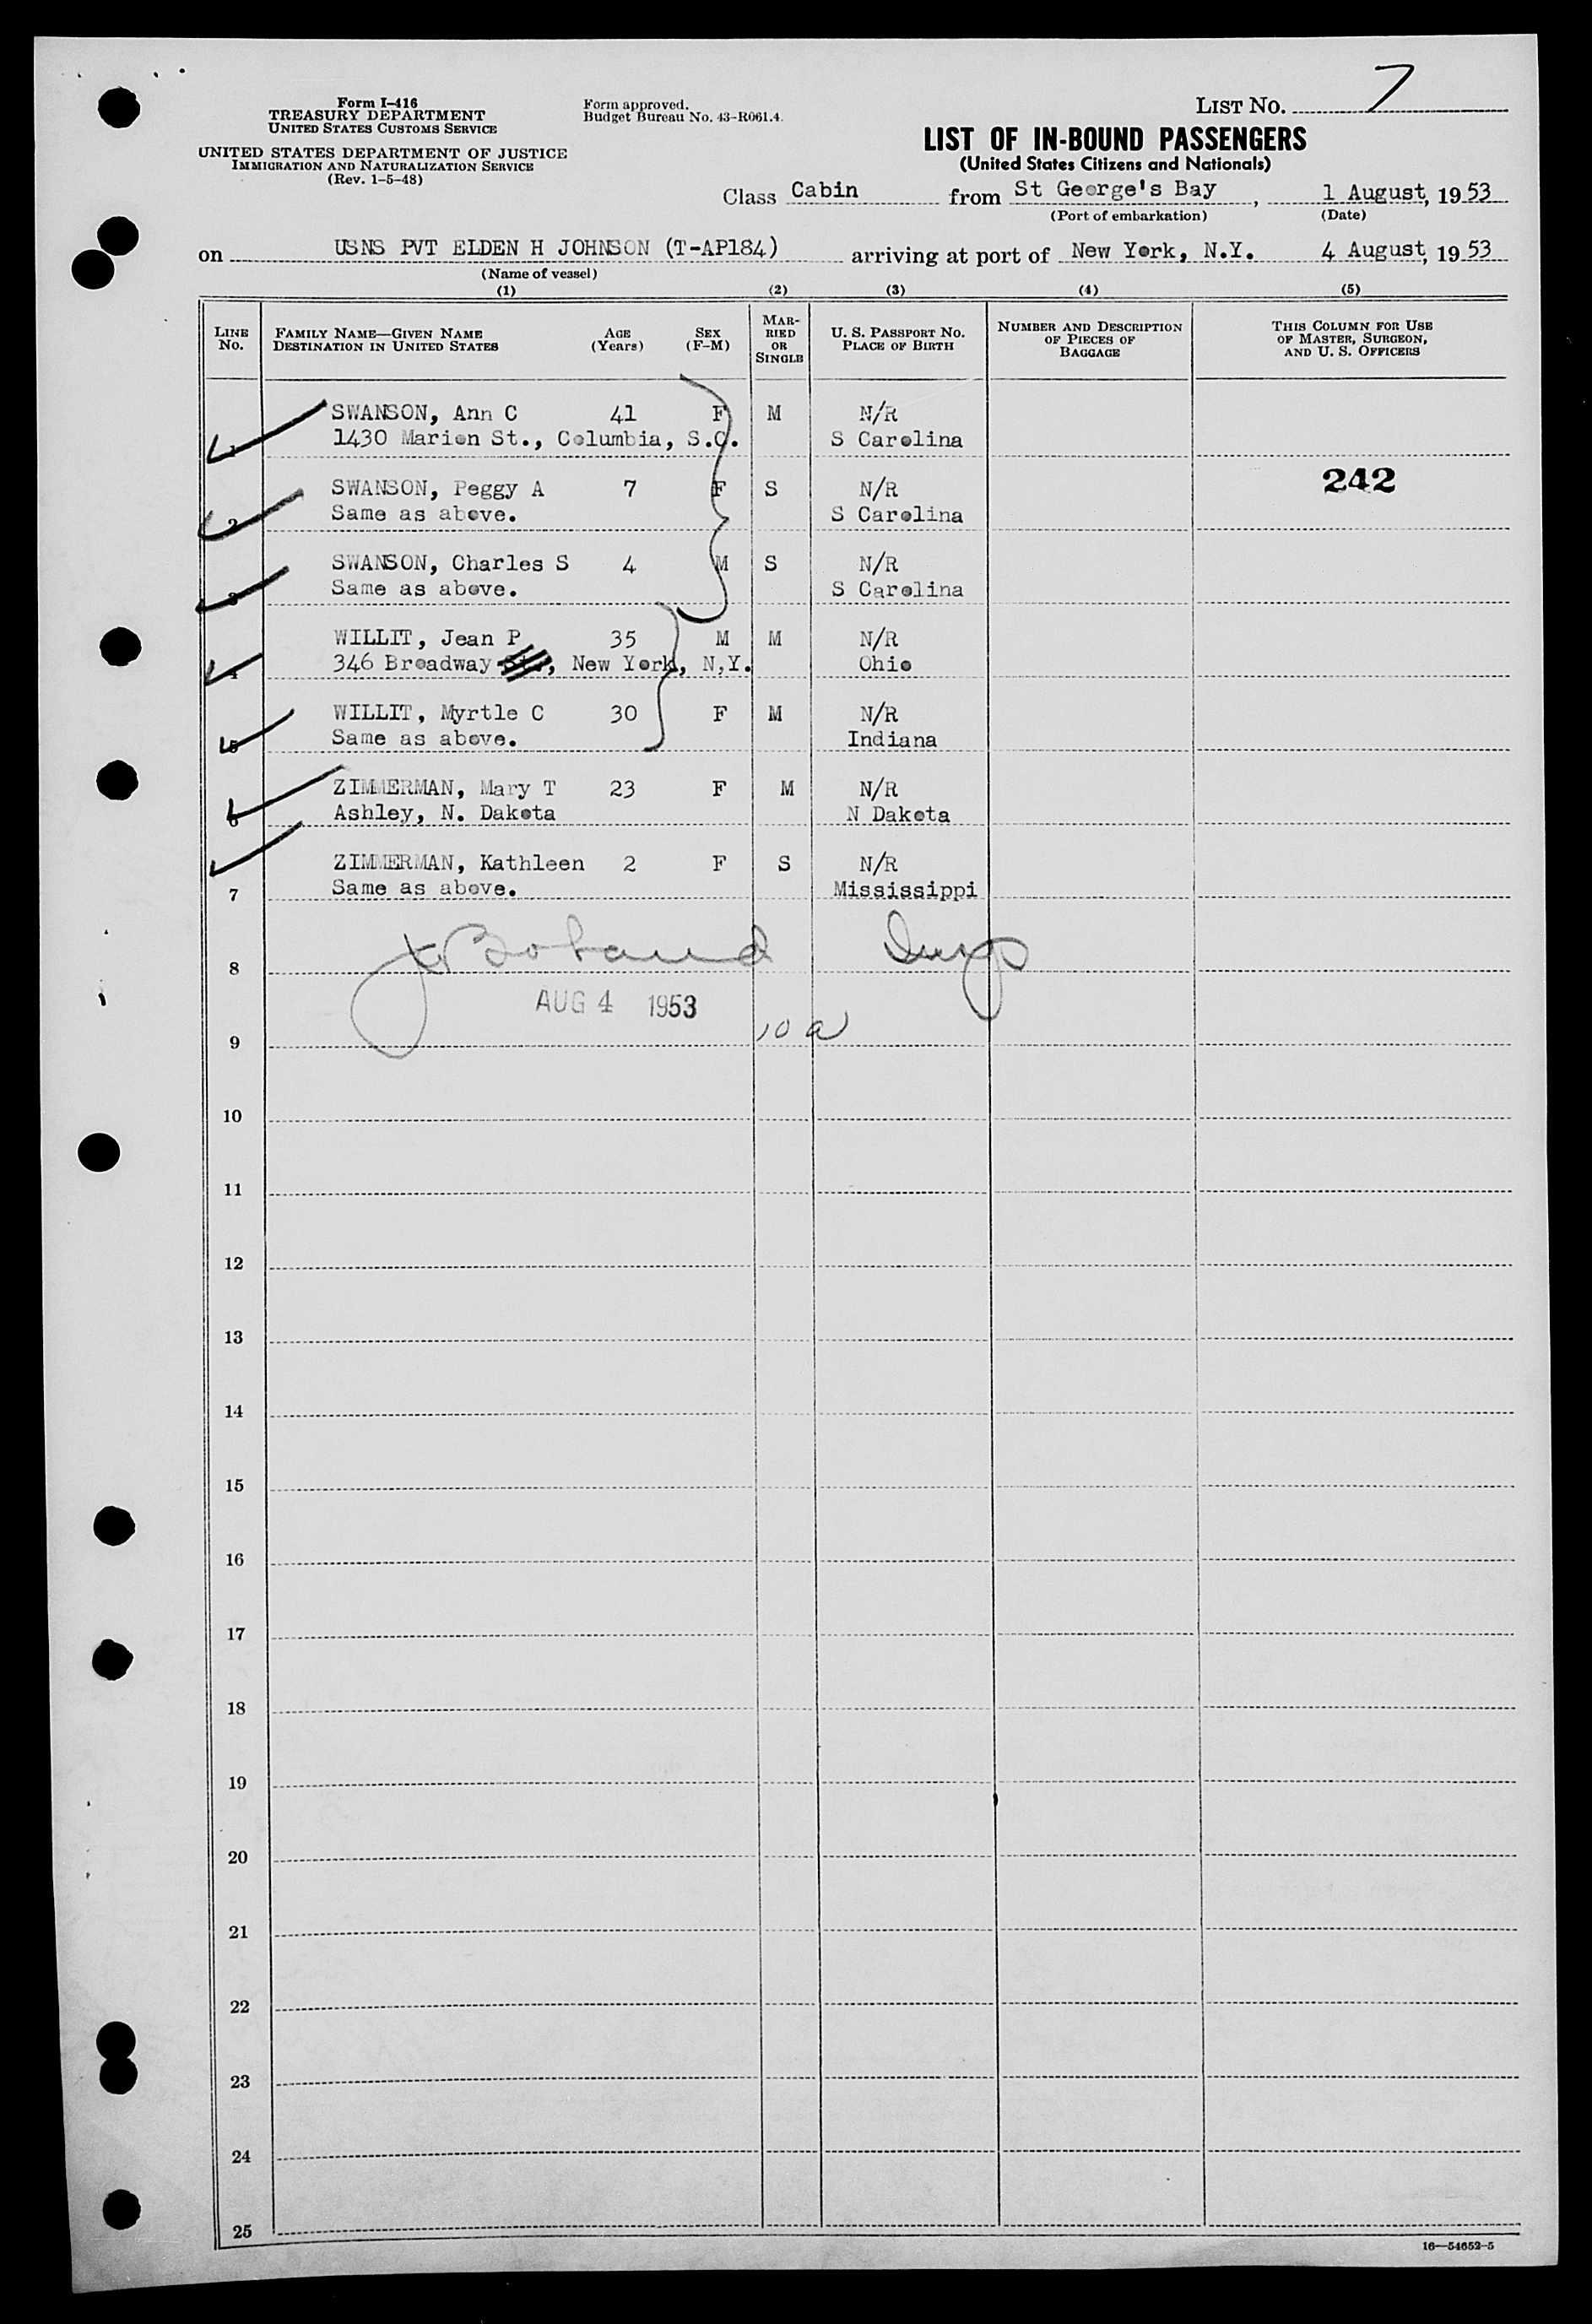 Form I-416
TREASURY DEPARTMENT
UNITED STATES CUSTOMS SERVICE
UNITED STATES DEPARTMENT OF JUSTICE
IMMIGRATION AND NATURALIZATION SERVICE
(Rev. 1-5-48)
Form approved.
Budget Bureau No. 43-R061.4.
LIST NO. 7
LIST OF IN-BOUND PASSENGERS
(United States Citizens and Nationals)
Class Cabin from St George's Bay, 1 August, 1953
(Port of embarkation) (Date)
on USNS PVT ELDEN H JOHNSON (T-AP184) arriving at port of New York, N.Y. 4 August, 1953
(Name of vessel)
(1) (2) (3) (4) (5)
LINE NO. FAMILY NAME—GIVEN NAME DESTINATION IN UNITED STATES AGE (Years) SEX (F-M) MARRIED OR SINGLE U. S. PASSPORT NO. PLACE OF BIRTH NUMBER AND DESCRIPTION OF PIECES OF BAGGAGE THIS COLUMN FOR USE OF MASTER, SURGEON, AND U. S. OFFICERS
SWANSON, Ann C 41 F M N/R
1 1430 Marion St., Columbia, S.C. S Carolina
SWANSON, Peggy A 7 F S N/R 242
2 Same as above. S Carolina
SWANSON, Charles S 4 M S N/R
3 Same as above. S Carolina
WILLIT, Jean P 35 M M N/R
4 346 Broadway St., New York, N,Y. Ohio
WILLIT, Myrtle C 30 F M N/R
5 Same as above. Indiana
ZIMMERMAN, Mary T 23 F M N/R
6 Ashley, N. Dakota N Dakota
ZIMMERMAN, Kathleen 2 F S N/R
7 Same as above. Mississippi
8 Insp
AUG 4 1953
9 10 a
10
11
12
13
14
15
16
17
18
19
20
21
22
23
24
25
16—54652-5